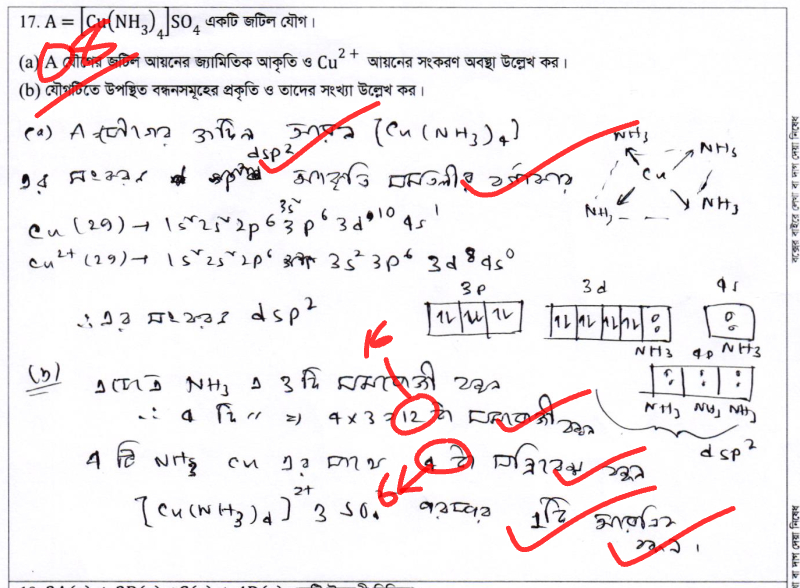 17. A = [Cu(NH₃)₄]SO₄ একটি জটিল যৌগ।
(a) A যৌগের জটিল আয়নের জ্যামিতিক আকৃতি ও Cu²⁺ আয়নের সংকরণ অবস্থা উল্লেখ কর।
(b) যৌগটিতে উপস্থিত বন্ধনসমূহের প্রকৃতি ও তাদের সংখ্যা উল্লেখ কর।
08
(a) A যৌগের জটিল আয়ন [Cu(NH₃)₄]
এর সংকরন dsp² আকৃতি সমতলীয় বর্গাকার
NH₃ NH₃
Cu
NH₃ NH₃
Cu(29) → 1s² 2s² 2p⁶ 3s² 3p⁶ 3d¹⁰ 4s¹
Cu²⁺(29) → 1s² 2s² 2p⁶ 3s² 3p⁶ 3d⁸ 4s⁰
∴ এর সংকরন dsp²
3p 3d 4s
NH₃ 4p NH₃
NH₃ NH₃ NH₃
dsp²
(b) NH₃ এ 3 টি সমযোজী বন্ধন
16
∴ 4 টি " ⇒ 4 × 3 = 12 টা সমযোজী বন্ধন
4 টি NH₃ Cu এর সাথে 4 টা সন্নিবেশ বন্ধন
6
[Cu(NH₃)₄]²⁺ ও SO₄ পরস্পর 1টি আয়নিক
বন্ধন।
বক্সের বাইরে লেখা বা দাগ দেয়া নিষেধ